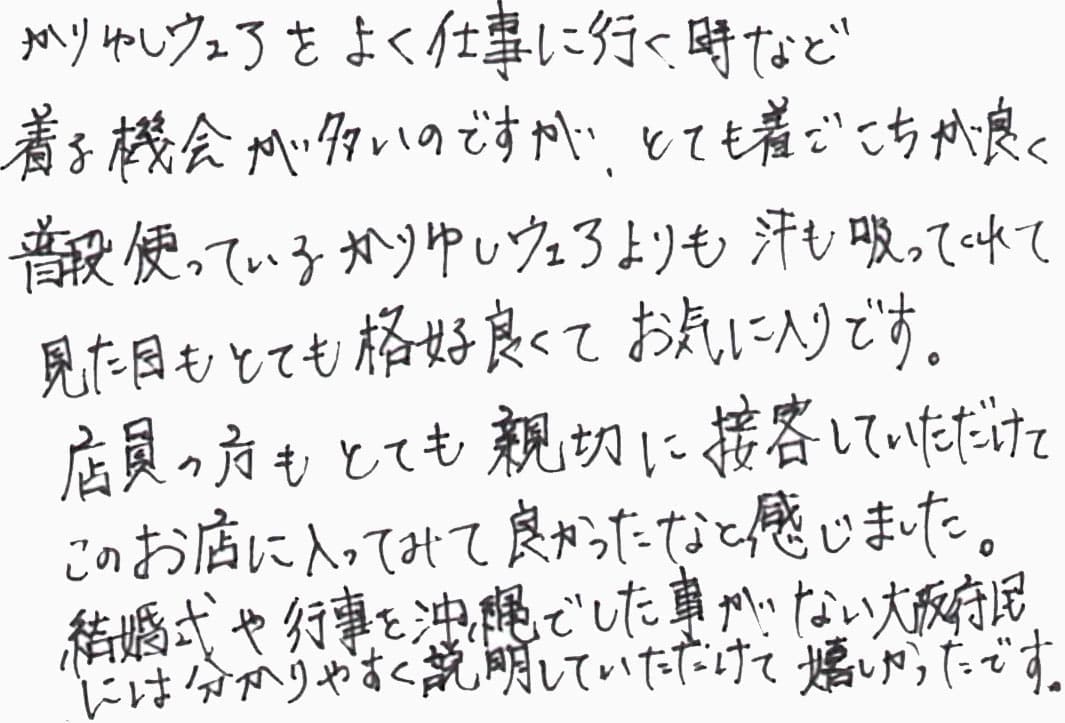 かりゆしウェアをよく仕事に行く時など
着る機会が多いのですが、とても着ごこちが良く
普段使っているかりゆしウェアよりも汗も吸ってくれて
見た目もとても格好良くてお気に入りです。
店員の方もとても親切に接客していただけて
このお店に入ってみて良かったなと感じました。
結婚式や行事を沖縄でした事がない大阪府民
には分かりやすく説明していただけて嬉しかったです。